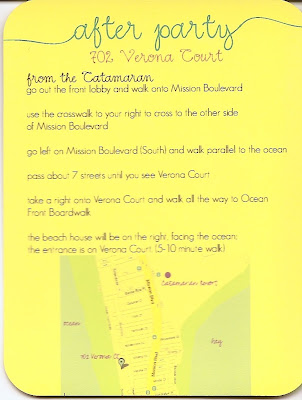 after party
702 Verona Court
from the Catamaran
go out the front lobby and walk onto Mission Boulevard
use the crosswalk to your right to cross to the other side
of Mission Boulevard
go left on Mission Boulevard (South) and walk parallel to the ocean
pass about 7 streets until you see Verona Court
take a right onto Verona Court and walk all the way to Ocean
Front Boardwalk
the beach house will be on the right, facing the ocean;
the entrance is on Verona Court (5-10 minute walk)
Catamaran Resort
ocean
bay
702 Verona Ct